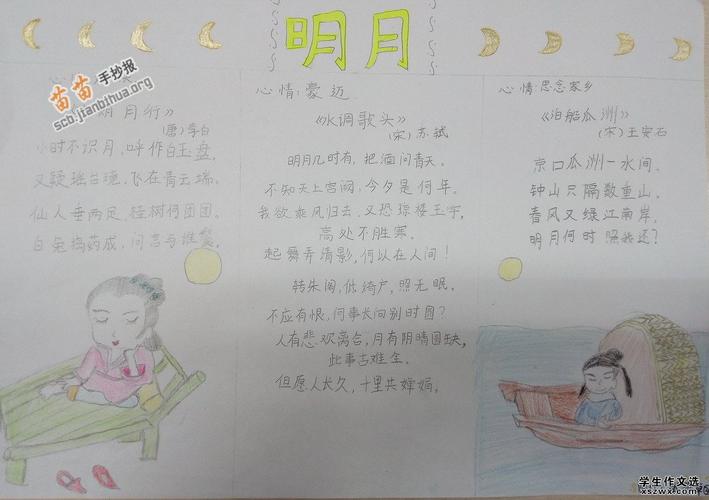 明月
苗苗手抄报
scb.jianbihua.org
心
明月行》
(唐)李白
小时不识月，呼作白玉盘。
又疑瑶台镜，飞在青云端。
仙人垂两足，桂树何团团。
白兔捣药成，问言与谁餐。
心情:豪迈
《水调歌头》
(宋)苏轼
明月几时有，把酒问青天。
不知天上宫阙，今夕是何年。
我欲乘风归去，又恐琼楼玉宇，
高处不胜寒。
起舞弄清影，何似在人间！
转朱阁，低绮户，照无眠。
不应有恨，何事长向别时圆？
人有悲欢离合，月有阴晴圆缺，
此事古难全。
但愿人长久，千里共婵娟。
心情:思念家乡
《泊船瓜洲》
(宋)王安石
京口瓜洲一水间，
钟山只隔数重山。
春风又绿江南岸，
明月何时照我还？
学生作文选
xszwx.xszwx.com